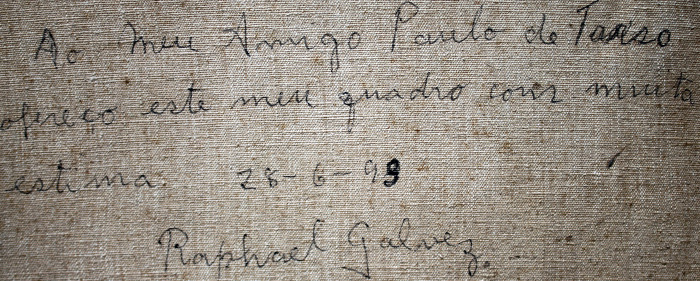 Ao meu Amigo Paulo de Tarso
ofereço este meu quadro com muita
estima. 28-6-93
Raphael Galvez.